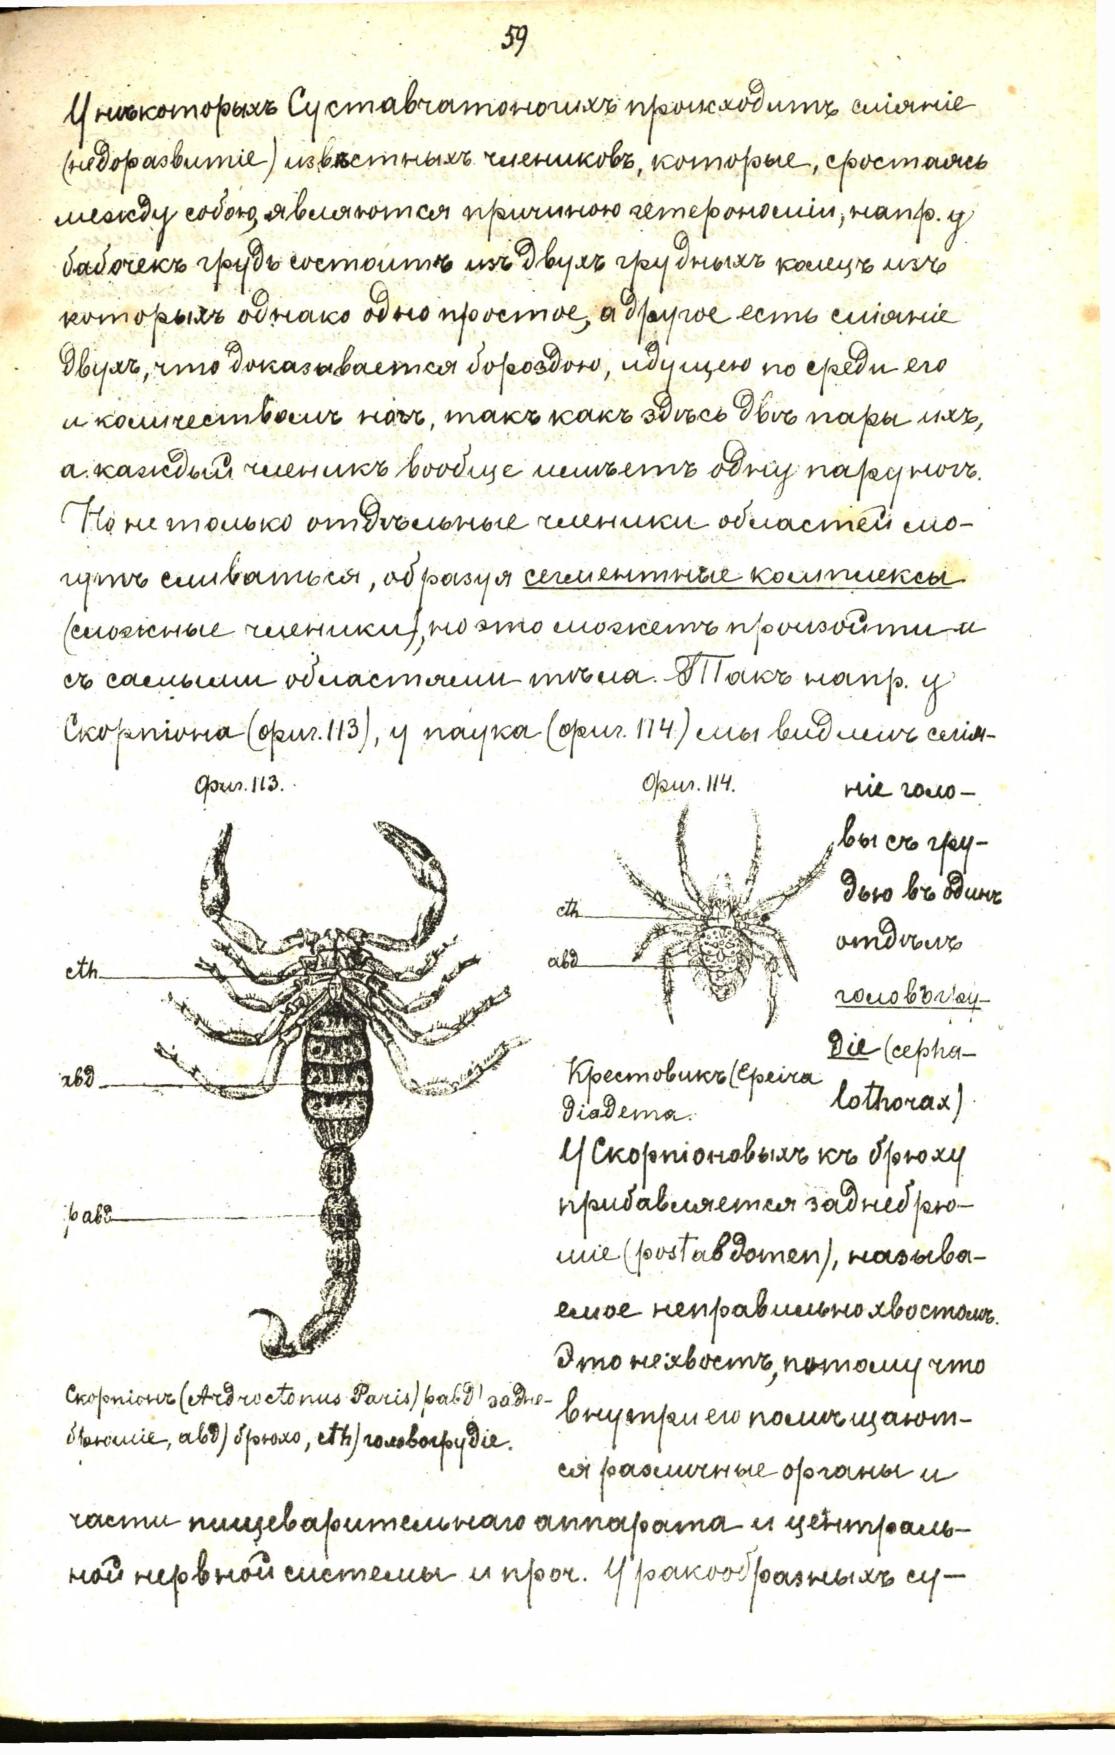 59
У нѣкоторыхъ Суставчатоногихъ происходитъ сліяніе
(недоразвитіе) извѣстныхъ члениковъ, которые, сростаясь
между собою, являются причиною гетерономіи, напр. у
бабочекъ грудь состоитъ изъ двухъ грудныхъ колецъ изъ
которыхъ однако одно простое, а другое есть сліяніе
двухъ, что доказывается бороздою, идущею по среди его
и количествомъ ногъ, такъ какъ здѣсь двѣ пары ихъ,
а каждый членикъ вообще имѣетъ одну пару ногъ.
Но не только отдѣльные членики областей мо-
гутъ сливаться, образуя сегментные комплексы
(сложные членики), но это можетъ произойти и
съ самыми областями тѣла. Такъ напр. у
Скорпіона (фиг. 113), у паука (фиг. 114) мы видимъ слія-
Фиг. 113.
Фиг. 114.
ніе голо-
вы съ гру-
дью въ одинъ
отдѣлъ
головогру-
діе (cepha-
lothorax)
cth
abd
cth
abd
p abd
Крестовикъ (Epeira
diadema.
У Скорпіоновыхъ къ брюху
прибавляется заднебрю-
шіе (postabdomen), называ-
емое неправильно хвостомъ.
Это не хвостъ, потому что
внутри его помѣщают-
ся различные органы и
Скорпіонъ (Androctonus Paris) pabd) задне-
брюшіе, abd) брюхо, cth) головогрудіе.
части пищеварительнаго аппарата и централь-
ной нервной системы и проч. У ракообразныхъ су-